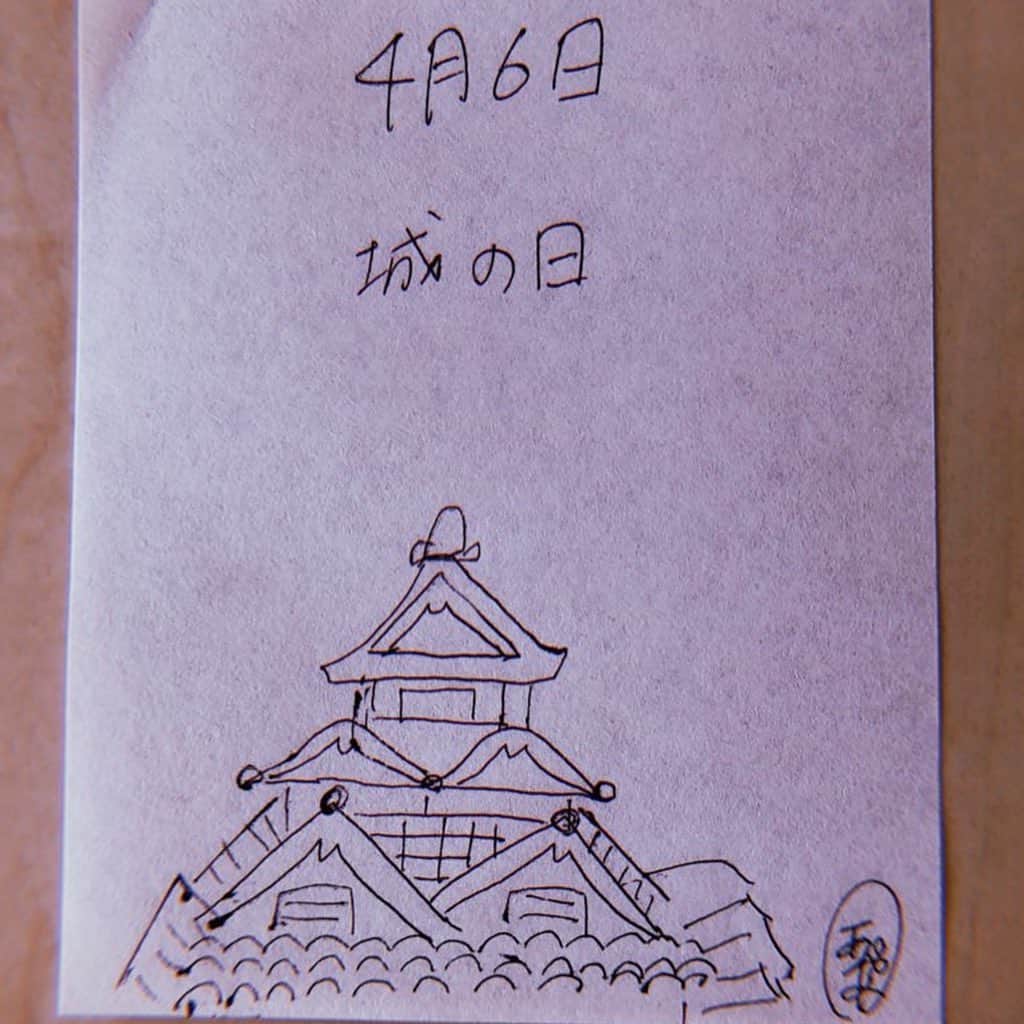 4月6日
城の日